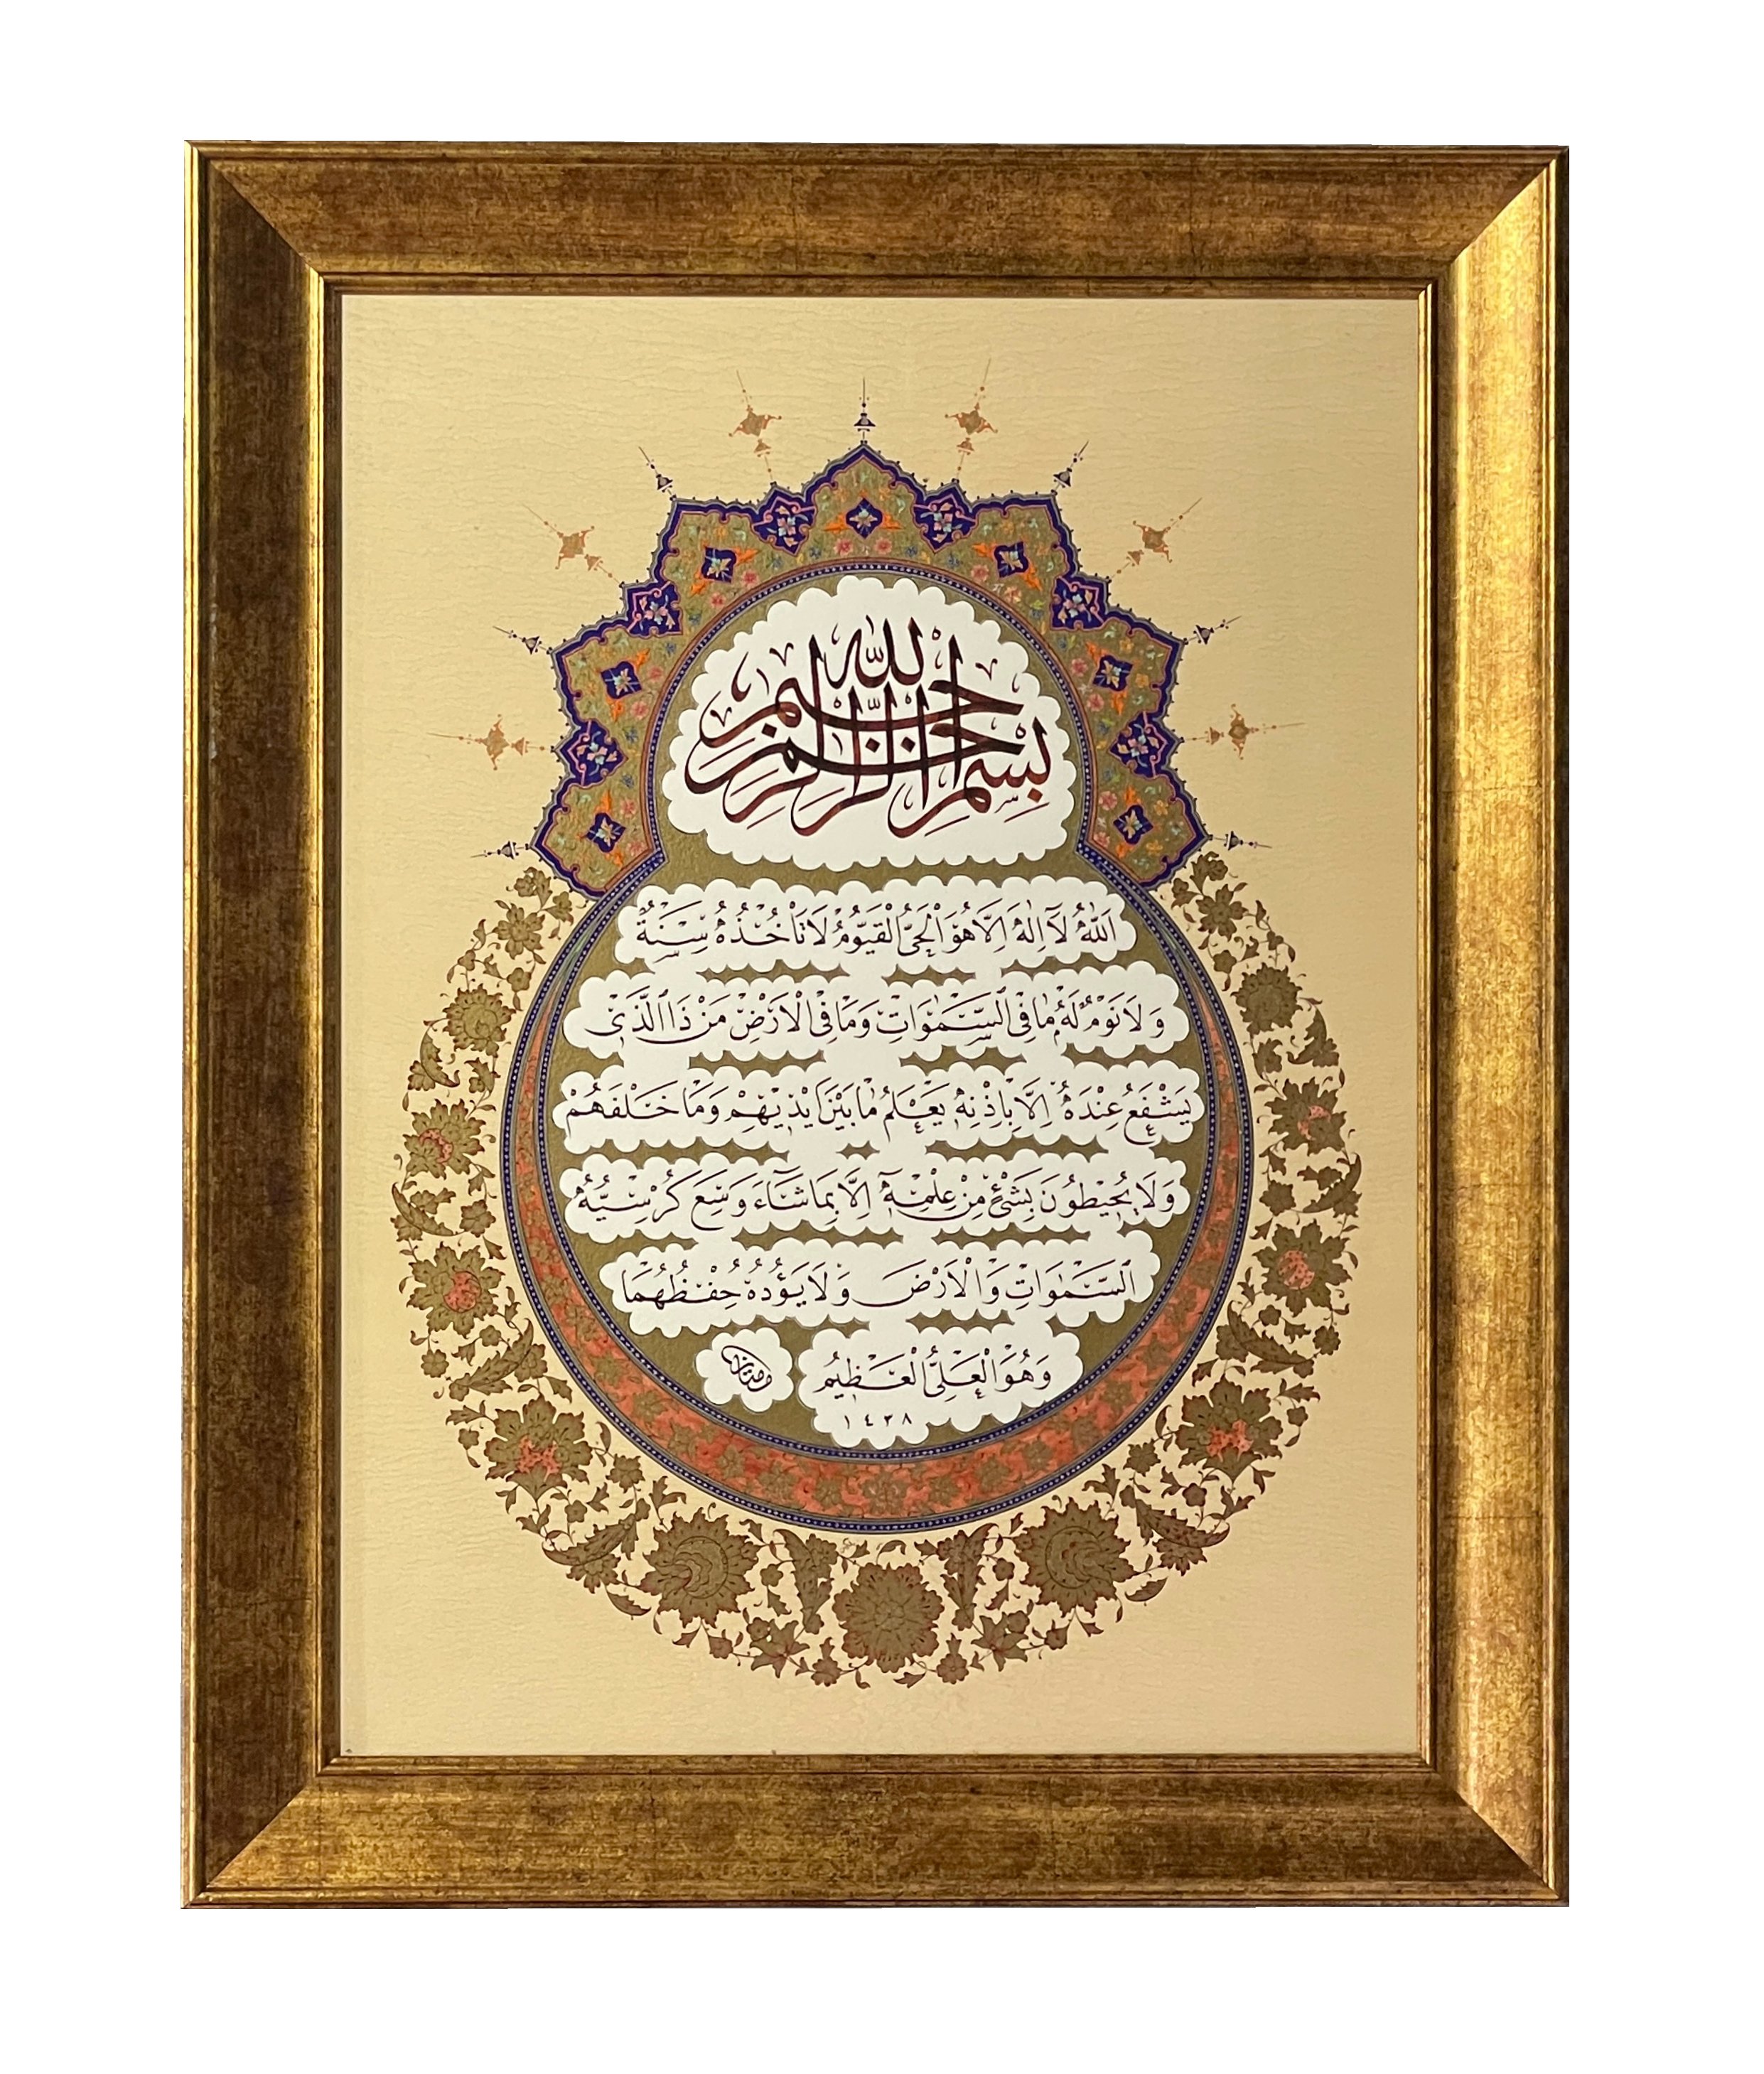 بِسْمِ اللّٰهِ الرَّحْمٰنِ الرَّحِيمِ
اَللّٰهُ لَٓا اِلٰهَ اِلَّا هُوَ الْحَىُّ الْقَيُّومُ لَا تَاْخُذُهُ سِنَةٌ
وَلَا نَوْمٌ لَهُ مَا فِى السَّمٰوَاتِ وَمَا فِى الْاَرْضِ مَنْ ذَا الَّذِى
يَشْفَعُ عِنْدَهُ اِلَّا بِاِذْنِهِ يَعْلَمُ مَا بَيْنَ اَيْدِيهِمْ وَمَا خَلْفَهُمْ
وَلَا يُحِيطُونَ بِشَىْءٍ مِنْ عِلْمِهِٓ اِلَّا بِمَا شَٓاءَ وَسِعَ كُرْسِيُّهُ
السَّمٰوَاتِ وَالْاَرْضَ وَلَا يَؤُدُهُ حِفْظُهُمَا
وَهُوَ الْعَلِىُّ الْعَظِيمُ
١٤٣٨